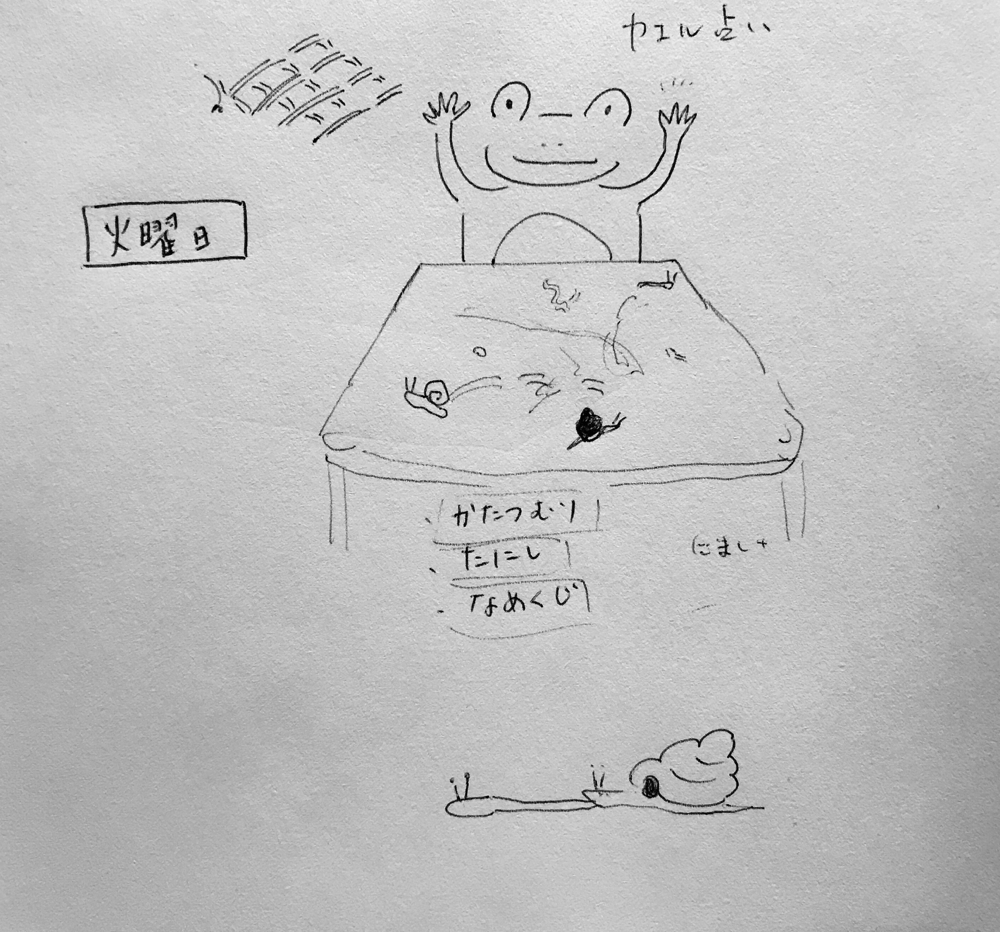 カエル占い
火曜日
かたつむり
たにし
なめくじ